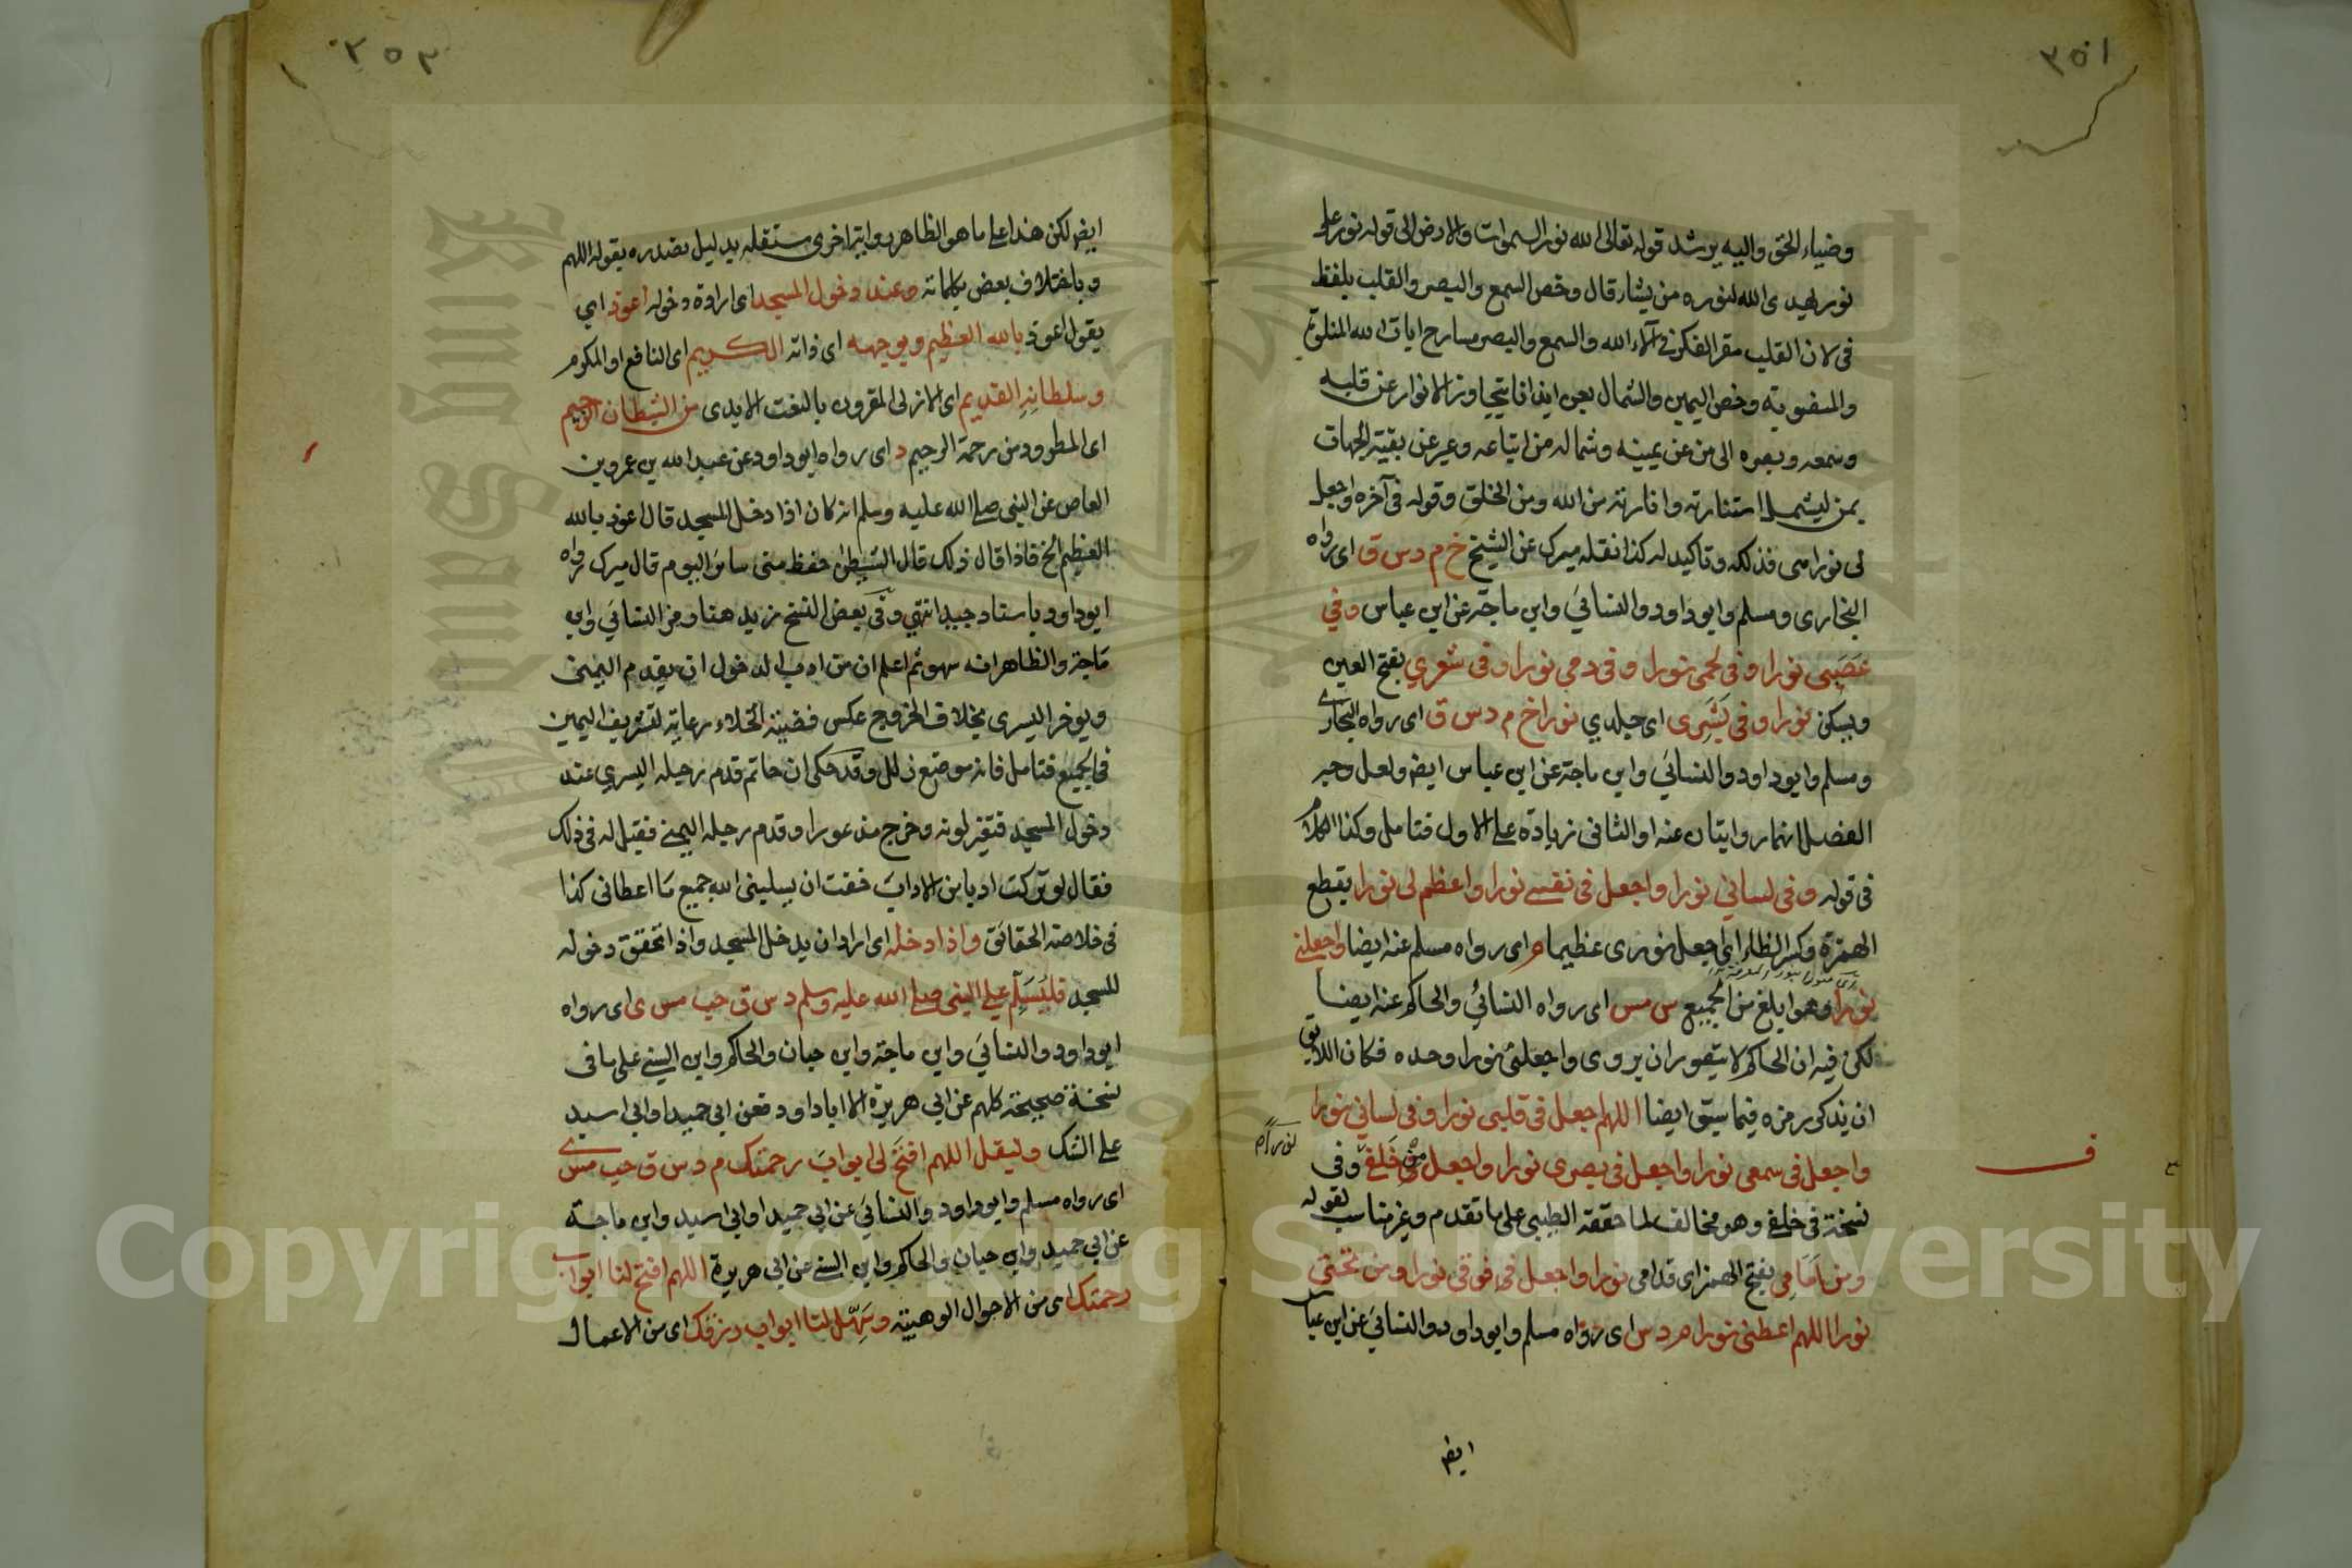 ٣٥١
وضياء الحق واليه يرشد قوله تعالى الله نور السموات والارض الى قوله نور على
نور يهدى الله لنوره من يشاء قال وخص السمع والبصر والقلب بلفظ
فى لان القلب مقر الفكر فى آلاء الله والسمع والبصر مسارح ايات الله المتلوة
والمنصوبة وخص اليمين والشمال بعن ايذانا بتجاوز الانوار عن قلبه
وسمعه وبصره الى من عن يمينه وشماله من اتباعه وعبر عن بقية الجهات
بمن ليشمل استنارته وانارته من الله ومن الخلق وقوله فى آخره واجعل
لى نورا هى فذلكة وتاكيد له كذا نقله ميرك عن الشيخ خ م د س ق اى رواه
البخارى ومسلم وابو داود والنسائي وابن ماجة عن ابن عباس وفي
عَصَبى نورا وفى لحمى نورا وفى دمى نورا وفى شعري بفتح العين
ويسكن نورا وفى بَشَرِى اى جلدي نورا خ م د س ق اى رواه البخارى
ومسلم وابو داود والنسائي وابن ماجة عن ابن عباس ايضا ولعل وجه
الفصل انهما روايتان عنه او الثانى زيادة على الاول فتامل وكذا الكلام
فى قوله وفى لساني نورا واجعل فى نفسى نورا واعظم لى نورا بقطع
الهمزة وكسر الظاء اى اجعل نورى عظيما م اى رواه مسلم عنه ايضا واجعلنى
نورا وهو ابلغ من الجميع س مس اى رواه النسائي والحاكم عنه ايضا
لكن فيه ان الحاكم لا يتصور ان يروى واجعلنى نورا وحده فكان اللائق
ان يذكر رمزه فيما سبق ايضا اللهم اجعل فى قلبى نورا وفى لساني نورا
واجعل فى سمعى نورا واجعل فى بصرى نورا واجعل من خَلفى وفى
نورا م
نسخة فى خلفى وهو مخالف لما حققه الطيبى على ما تقدم وغير مناسب لقوله
ومن اَمَامِى بفتح الهمزة اى قدامى نورا واجعل من فوقى نورا ومن تحتى
نورا اللهم اعطنى نورا م د س اى رواه مسلم وابو داود والنسائي عن ابن عباس
ايضا
٣٥٢
ايضا لكن هذا على ما هو الظاهر رواية اخرى مستقلة بدليل تصدره بقوله اللهم
وباختلاف بعض كلماته وعند دخول المسجد اى ارادة دخوله اعوذ اى
يقول اعوذ بالله العظيم وبوجهه اى ذاته الكريم اى النافع او المكرم
وسلطانِهِ القديم اى الازلى المقرون بالنعت الابدى من الشيطان الرجيم
اى المطرود من رحمة الرحيم د اى رواه ابو داود عن عبد الله بن عمرو بن
العاص عن النبى صلى الله عليه وسلم انه كان اذا دخل المسجد قال اعوذ بالله
العظيم الخ فاذا قال ذلك قال الشيطن حفظ منى سائر اليوم قال ميرك رواه
ابو داود باسناد جيد انتهى وفى بعض النسخ زيد هنا رمز النسائي وابن
ماجة والظاهر انه سهو ثم اعلم ان من ادب الدخول ان يقدم اليمنى
ويوخر اليسرى بخلاف الخروج عكس قضية الخلاء رعاية لتشريف اليمين
فى الجميع فتامل فانه موضع زلل وقد حكى ان حاتم قدم رجله اليسرى عند
دخول المسجد فتغير لونه وخرج مذعورا وقدم رجله اليمنى فقيل له فى ذلك
فقال لو تركت ادبا من الاداب خفت ان يسلبنى الله جميع ما اعطانى كذا
فى خلاصة الحقائق واذا دخله اى اراد ان يدخل المسجد واذا تحقق دخوله
للمسجد فليُسَلِّم على النبى صلى الله عليه وسلم د س ق حب مس ى اى رواه
ابو داود والنسائي وابن ماجة وابن حبان والحاكم وابن السنى على ما فى
نسخة صحيحة كلهم عن ابى هريرة الا ابا داود فعن ابى حميد او ابى اسيد
على الشك وليقل اللهم افتح لى ابواب رحمتك م د س ق حب مس ى
اى رواه مسلم وابو داود والنسائي عن ابى حميد او ابى اسيد وابن ماجة
عن ابى حميد وابن حبان والحاكم وابن السنى عن ابى هريرة اللهم افتح لنا ابواب
رحمتك اى من الاحوال الوهبية وسَهِّل لنا ابواب رزقك اى من الاعمال
Copyright © King Saud University
King Saud
1957